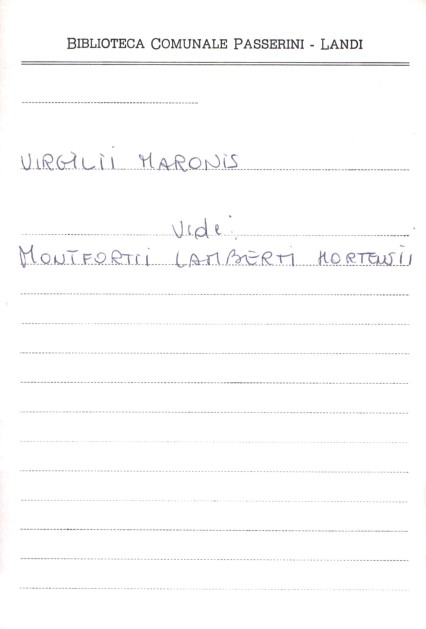 BIBLIOTECA COMUNALE PASSERINI - LANDI
VIRGILII MARONIS
Vide:
MONTFORTII LAMBERTI HORTENSII